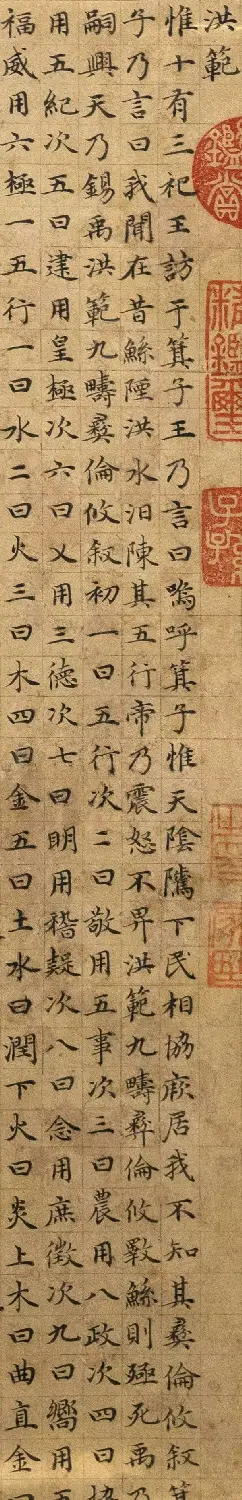 洪範
惟十有三祀王訪于箕子王乃言曰嗚呼箕子惟天陰隲下民相協厥居我不知其彝倫攸叙箕
子乃言曰我聞在昔鯀陻洪水汨陳其五行帝乃震怒不畀洪範九疇彝倫攸斁鯀則殛死禹乃
嗣興天乃錫禹洪範九疇彝倫攸叙初一曰五行次二曰敬用五事次三曰農用八政次四曰協
用五紀次五曰建用皇極次六曰乂用三德次七曰明用稽疑次八曰念用庶徵次九曰嚮用五
福威用六極一五行一曰水二曰火三曰木四曰金五曰土水曰潤下火曰炎上木曰曲直金曰